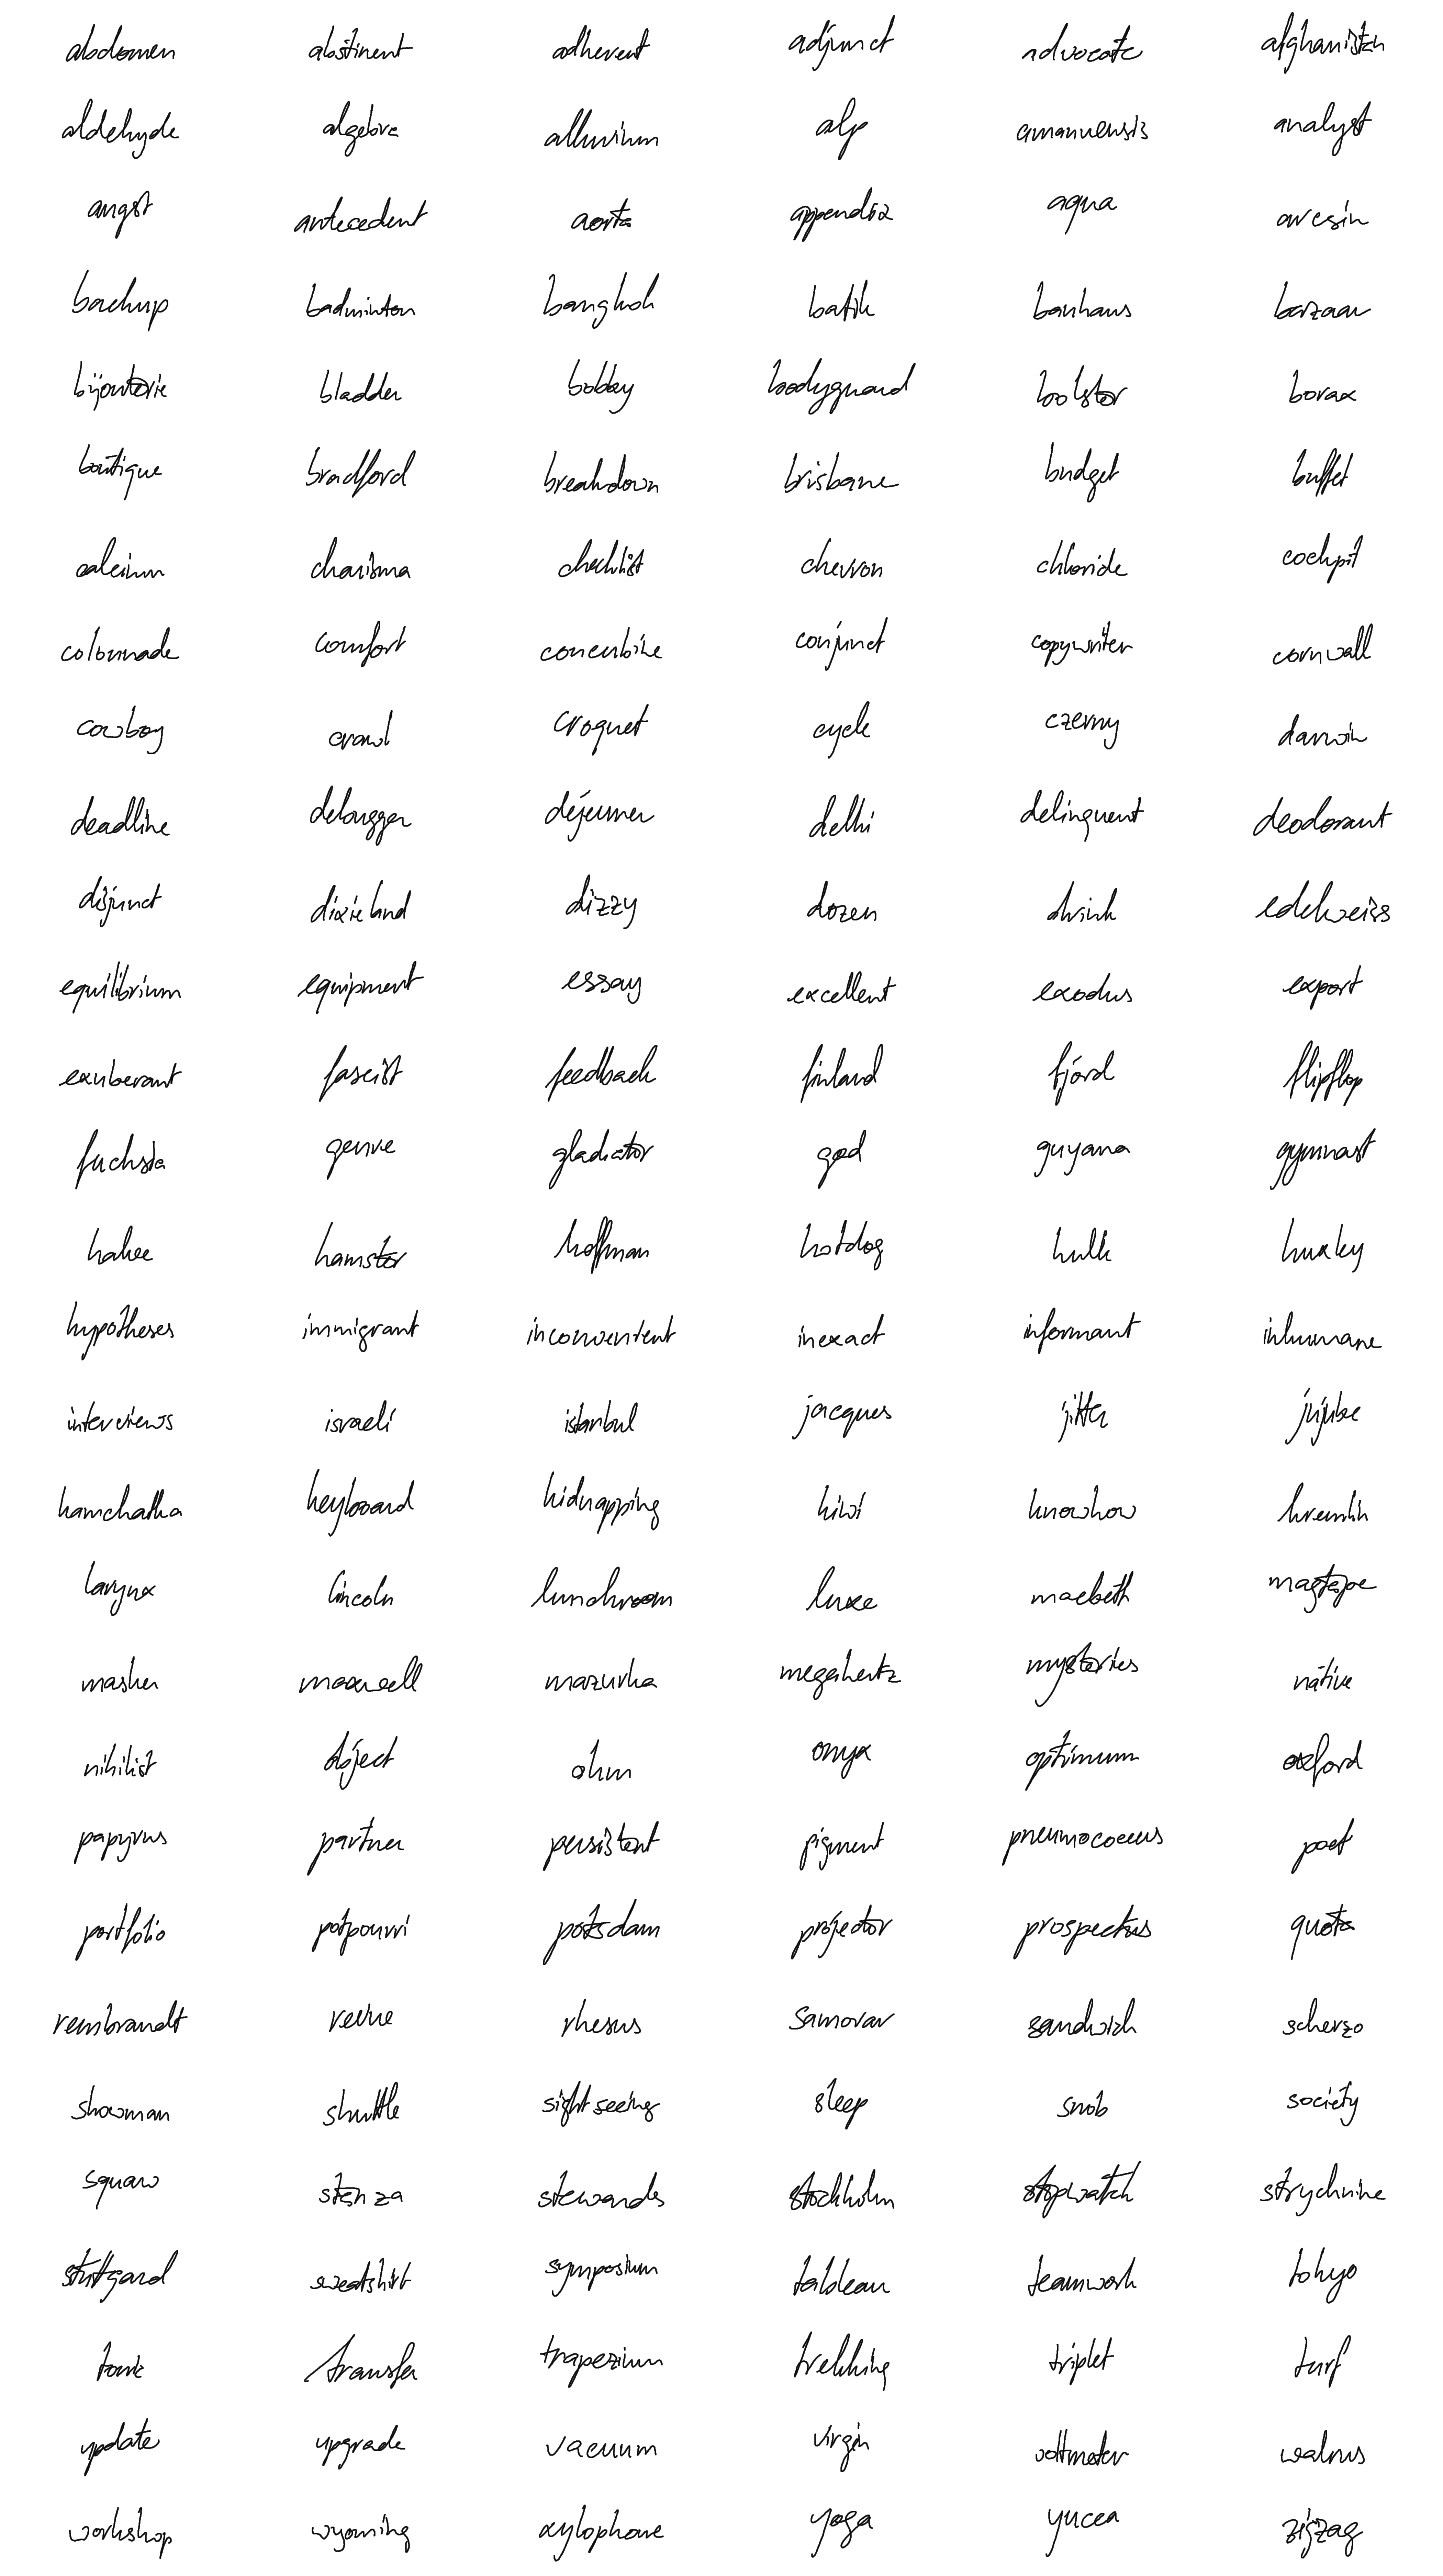 abdomen abstinent adherent adjunct advocate afghanistan
aldehyde algebra alluvium alp amanuensis analyst
angst antecedent aorta appendix aqua
backup badminton bangkok batik bauhaus bazaar
bijouterie bladder bobby bodyguard bolster borax
boutique bradford breakdown brisbane budget buffet
calcium charisma checklist chevron chloride cockpit
colonnade comfort concubine conjunct copywriter cornwall
cowboy crawl croquet cycle czerny darwin
deadline debugger déjeuner delhi delinquent deodorant
disjunct dixieland dizzy dozen drink edelweiss
equilibrium equipment essay excellent exodus export
exuberant fascist feedback finland fjord flipflop
fuchsia genre gladiator god guyana gymnast
hakee hamster hoffman hotdog hulk huxley
hypotheses immigrant inconvenient inexact informant inhumane
interviews israeli istanbul jacques jitter jujube
kamchatka keyboard kidnapping kiwi knowhow kremlin
larynx lincoln lunchroom luxe macbeth magtape
masker maxwell mazurka megahertz mysteries native
nihilist object ohm onyx optimum oxford
papyrus partner persistent pigment pneumococcus poet
portfolio potpourri potsdam projector prospectus quota
rembrandt revue rhesus samovar sandwich scherzo
showman shuttle sightseeing sleep snob society
squaw stanza stewards stockholm stopwatch strychnine
stuttgard sweatshirt symposium tableau teamwork tokyo
tonic transfer trapezium trekking triplet turf
update upgrade vacuum virgin voltmeter walrus
workshop wyoming xylophone yoga yucca zigzag